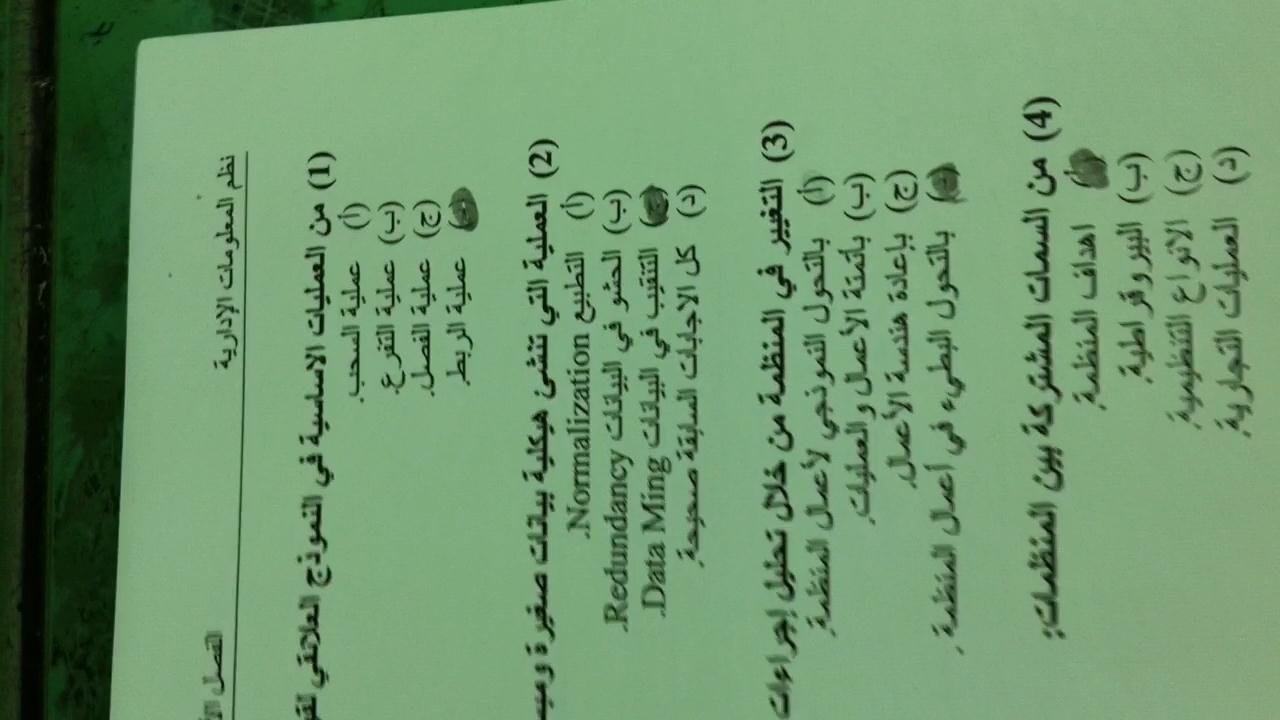 نظم المعلومات الإدارية الفصل
(1) من العمليات الاساسية في النموذج العلائقي
(أ) عملية السحب.
(ب) عملية التفرع.
(ج) عملية الفصل.
عملية الربط.
(2) العملية التي تنشئ هيكلية بيانات صغيرة
(أ) التطبيع Normalization.
(ب) الحشو في البيانات Redundancy.
(ج) التنقيب في البيانات Data Ming.
(د) كل الاجابات السابقة صحيحة.
(3) التغيير في المنظمة من خلال تحليل إجراءات
(أ) بالتحول النموذجي لأعمال المنظمة.
(ب) بأتمتة الأعمال والعمليات.
(ج) بإعادة هندسة الأعمال.
بالتحول البطيء في أعمال المنظمة.
(4) من السمات المشتركة بين المنظمات:
(أ) اهداف المنظمة.
(ب) البيروقراطية.
(ج) الانواع التنظيمية.
(د) العمليات التجارية.